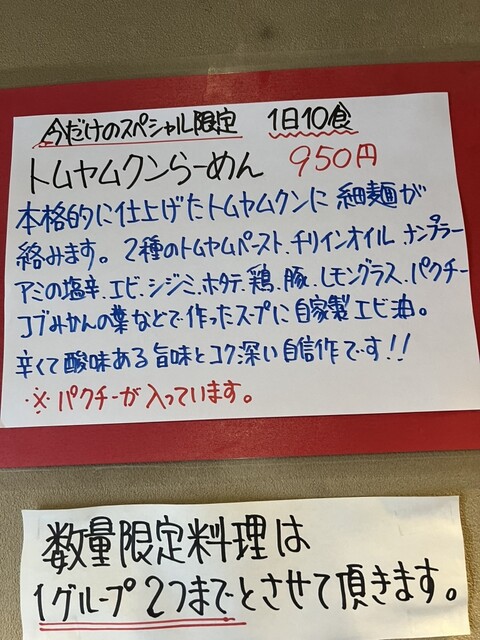 今だけのスペシャル限定 1日10食
トムヤムクンらーめん 950円
本格的に仕上げたトムヤムクンに細麺が
絡みます。2種のトムヤムペースト、チリインオイル、ナンプラー
アミの塩辛、エビ、シジミ、ホタテ、鶏、豚、レモングラス、パクチー
コブみかんの葉などで作ったスープに自家製エビ油。
辛くて酸味ある旨味とコク深い自信作です!!
※パクチーが入っています。
数量限定料理は
1グループ2つまでとさせて頂きます。